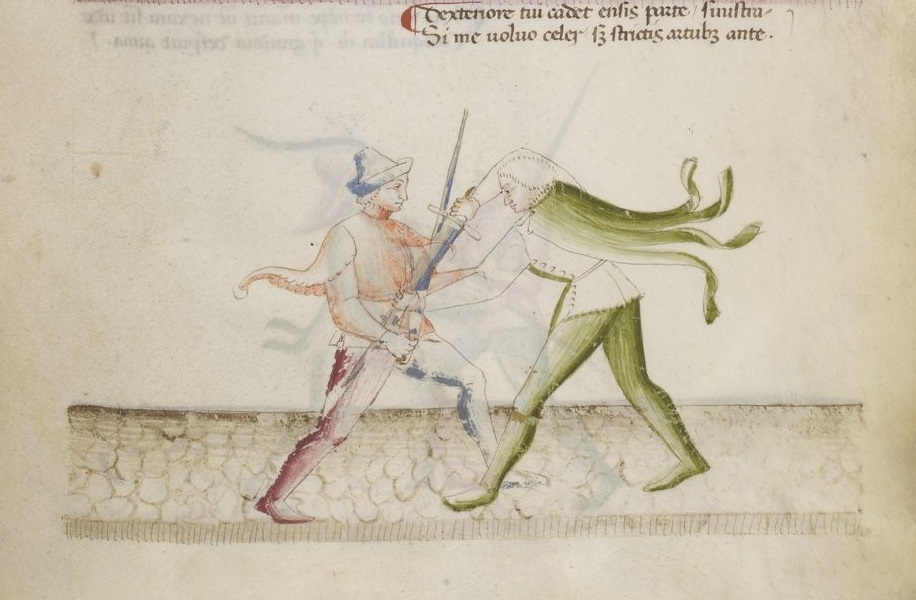 Dexteriore tui cadet ensis parte / sinistra·
Si me uoluo celer sʒ strictis artubʒ ante.